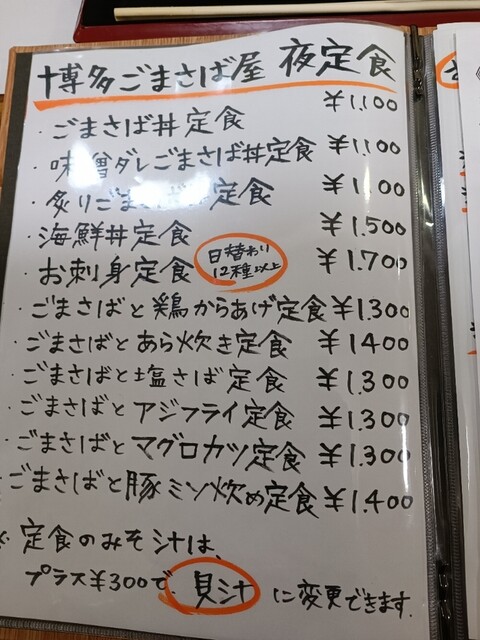 博多ごまさば屋 夜定食
・ごまさば丼定食 ¥1,100
・味噌ダレごまさば丼定食 ¥1,100
・炙りごま 定食
・海鮮丼定食 ¥1.500
・お刺身定食 日替わり 12種以上 ¥1.700
・ごまさばと鶏からあげ定食 ¥1.300
・ごまさばとあら炊き定食 ¥1400
・ごまさばと塩さば定食 ¥1.300
・ごまさばとアジフライ定食 ¥1.300
・ごまさばとマグロカツ定食 ¥1.300
・ごまさばと豚ミソ炊め定食 ¥1.400
※定食のみそ汁は、
プラス¥300で、貝汁に変更できます。